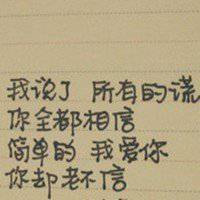 我说了 所有的谎
你全都相信
简单的 我爱你
你却老不信